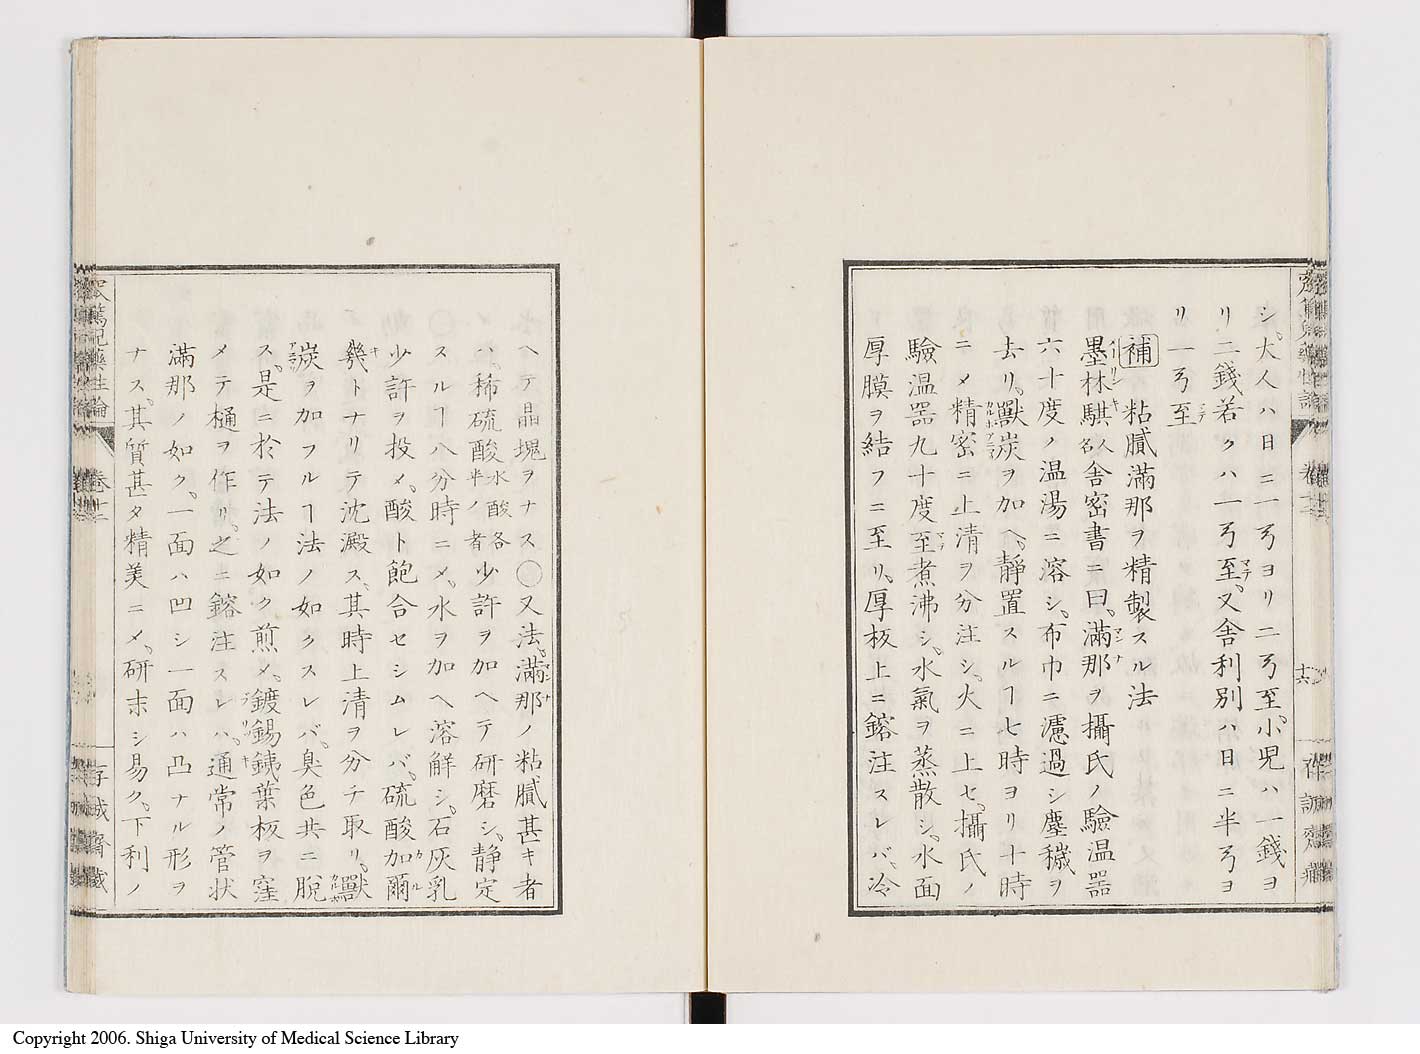 シ、大人ハ日ニ一弓ヨリ二弓至、小児ハ一錢ヨ
リ二錢若クハ一弓至、又舎利別ハ日ニ半弓ヨ
リ一弓至
補 粘膩滿那ヲ精製スル法
墨林騏人名舎密書ニ曰、滿那ヲ攝氏ノ驗温器
六十度ノ温湯ニ溶シ、布巾ニ濾過シ塵穢ヲ
去リ、獸炭ヲ加ヘ、靜置スルヿ七時ヨリ十時
ニメ精密ニ上清ヲ分注シ、火ニ上セ、攝氏ノ
驗温器九十度至煮沸シ、水氣ヲ蒸散シ、水面
厚膜ヲ結フニ至リ、厚板上ニ鎔注スレバ、冷
ヘテ晶塊ヲナス○又法、滿那ノ粘膩甚キ者
ハ、稀硫酸水酸各半ノ者少許ヲ加ヘテ研磨シ、靜定
スルヿ八分時ニメ、水ヲ加ヘ溶解シ、石灰乳
少許ヲ投メ、酸ト飽合セシムレバ、硫酸加爾
幾トナリテ沈澱ス、其時上清ヲ分チ取リ、獸
炭ヲ加フルヿ法ノ如クスレバ、臭色共ニ脱
ス、是ニ於テ法ノ如ク煎メ、鍍錫銕葉板ヲ窪
メテ樋ヲ作リ、之ニ鎔注スレハ、通常ノ管状
滿那ノ如ク、一面ハ凹シ一面ハ凸ナル形ヲ
ナス、其質甚タ精美ニメ、研末シ易ク、下利ノ
Copyright 2006. Shiga University of Medical Science Library